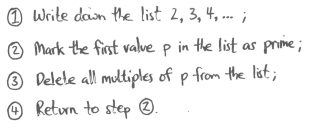 ① Write down the list 2, 3, 4, ... ;
② Mark the first value p in the list as prime;
③ Delete all multiples of p from the list;
④ Return to step ②.